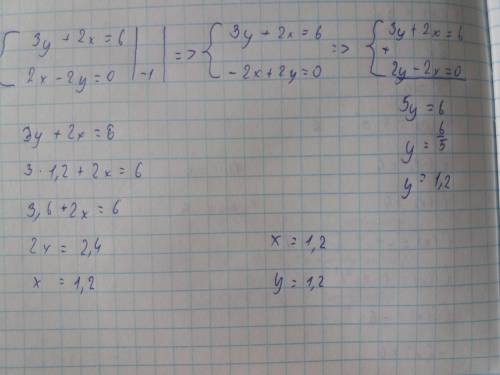 { 3y + 2x = 6 | | => { 3y + 2x = 6 => { 3y + 2x = 6
+
2x - 2y = 0 | -1 | - 2x + 2y = 0 2y - 2x = 0
5y = 6
y = 6/5
y = 1,2
3y + 2x = 6
3 · 1,2 + 2x = 6
3,6 + 2x = 6
2x = 2,4 x = 1,2
x = 1,2 y = 1,2